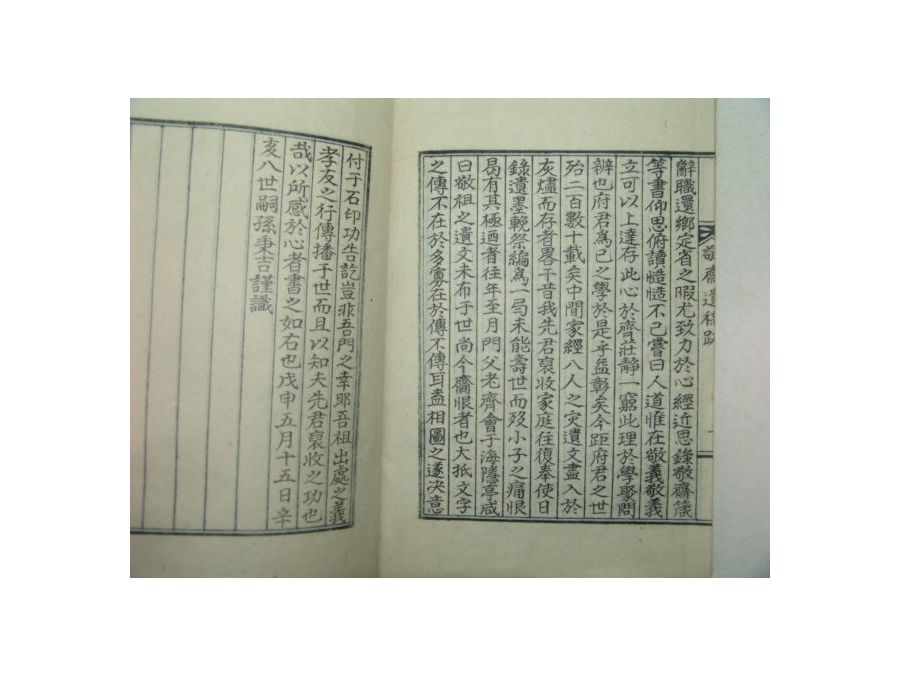 敬齋遺稿跋
辭職還鄉定省之暇尤致力於心經近思錄敬齋箴
等書仰思俯讀慥慥不已嘗曰人道惟在敬義敬義
立可以上達存此心於齊莊靜一窮此理於學聚問
辨也府君爲己之學於是乎益彰矣今距府君之世
殆二百數十載矣中間家經八人之灾遺文盡入於
灰燼而存者畧干昔我先君裒收家庭往復奉使日
錄遺墨輓祭編爲一局未能壽世而歿小子之痛恨
曷有其極迺者往年至月門父老齊會于海隱亭咸
曰敬祖之遺文未布于世尚今齎恨者也大抵文字
之傳不在於多寡在於傳不傳耳盍相圖之遂決意
付于石印功告訖豈非吾門之幸耶吾祖出處之義
孝友之行傳播于世而且以知夫先君裒收之功也
哉以所感於心者書之如右也戊申五月十五日辛
亥八世嗣孫秉吉謹識